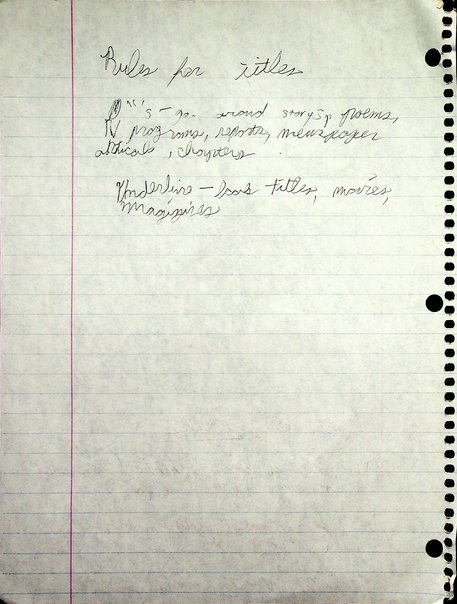 Rules for titles
" "'s - go around storys, poems,
TV programs, reports, newspaper
articals, chapters
Underline - book titles, movies,
magizines